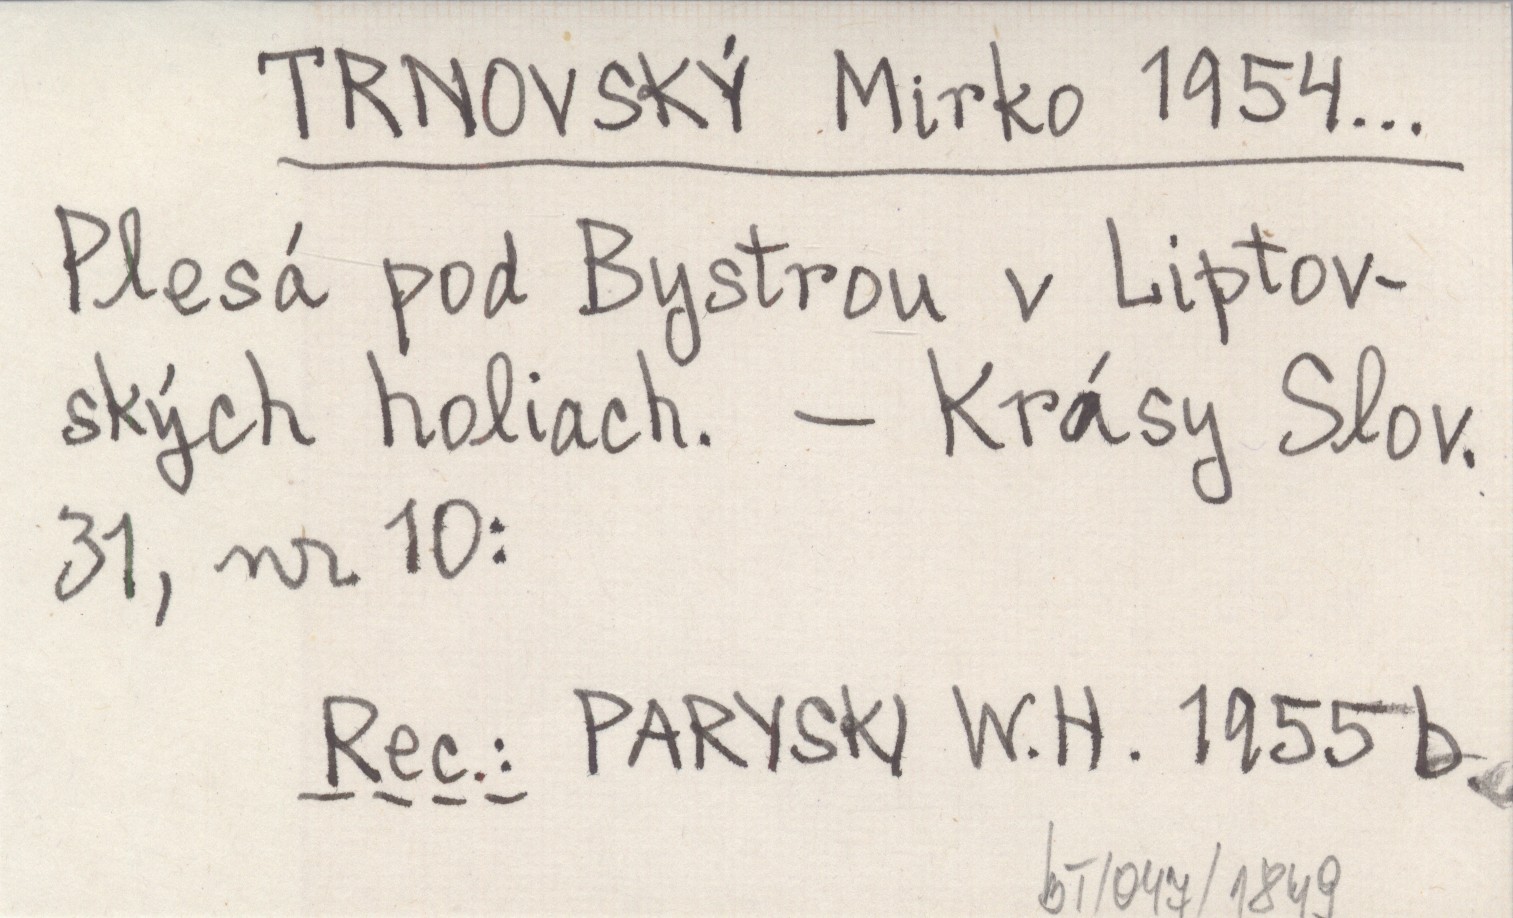 TRNOVSKÝ Mirko 1954...
Plesá pod Bystrou v Liptov-
ských holiach. – Krásy Slov.
31, nr 10:
Rec.: PARYSKI W.H. 1955 b.
bT/047/1849